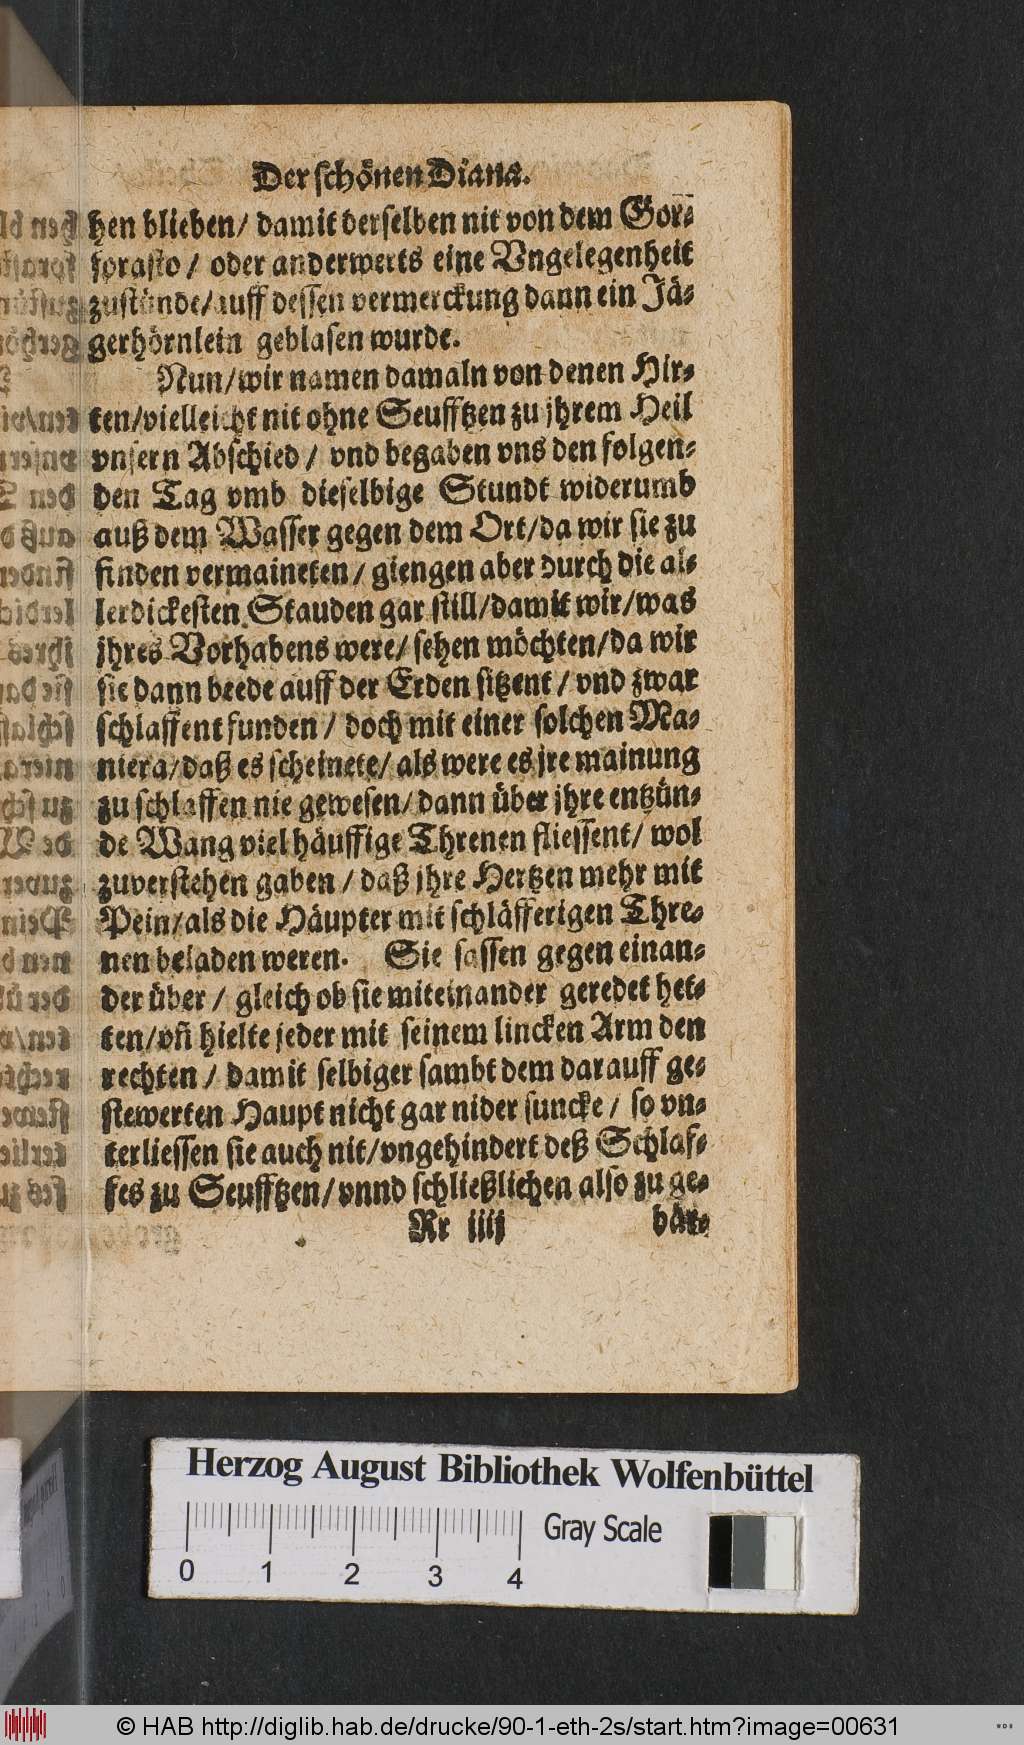 Der schönen Diana.
hen blieben/ damit derselben nit von dem Gor-
forasto / oder anderwerts eine Vngelegenheit
zustünde/auff dessen vermerckung dann ein Jä-
gerhörnlein geblasen wurde.
Nun/wir namen damaln von denen Hir-
ten/vielleicht nit ohne Seufftzen zu jhrem Heil
vnsern Abschied / vnd begaben vns den folgen-
den Tag vmb dieselbige Stundt widerumb
auß dem Wasser gegen dem Ort/da wir sie zu
finden vermaineten/ giengen aber durch die al-
lerdickesten Stauden gar still/damit wir/was
jhres Vorhabens were/ sehen möchten/da wir
sie dann beede auff der Erden sitzent / vnd zwar
schlaffent funden / doch mit einer solchen Ma-
niera/daß es scheinete/ als were es jre mainung
zu schlaffen nie gewesen/ dann über jhre entzün-
de Wang viel häuffige Threnen fliessent/ wol
zuverstehen gaben / daß jhre Hertzen mehr mit
Pein/als die Häupter mit schläfferigen Thre-
nen beladen weren. Sie sassen gegen einan-
der über / gleich ob sie miteinander geredet het-
ten/vñ hielte jeder mit seinem lincken Arm den
rechten / damit selbiger sambt dem darauff ge-
stewerten Haupt nicht gar nider suncke / so vn-
terliessen sie auch nit/vngehindert deß Schlaf-
fes zu Seufftzen/vnnd schließlichen also zu ge-
Rr iiij bär-
Herzog August Bibliothek Wolfenbüttel
Gray Scale
0 1 2 3 4
© HAB http://diglib.hab.de/drucke/90-1-eth-2s/start.htm?image=00631